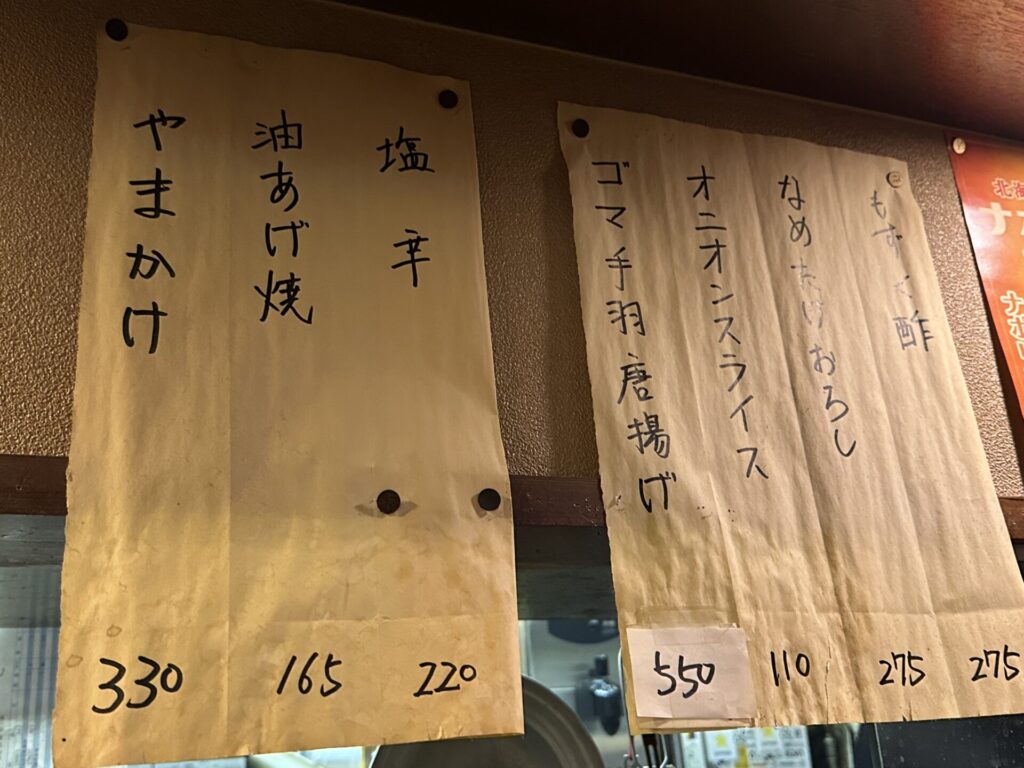 もずく酢
275
なめたけおろし
275
オニオンスライス
110
ゴマ手羽唐揚げ
550
塩辛
220
油あげ焼
165
やまかけ
330